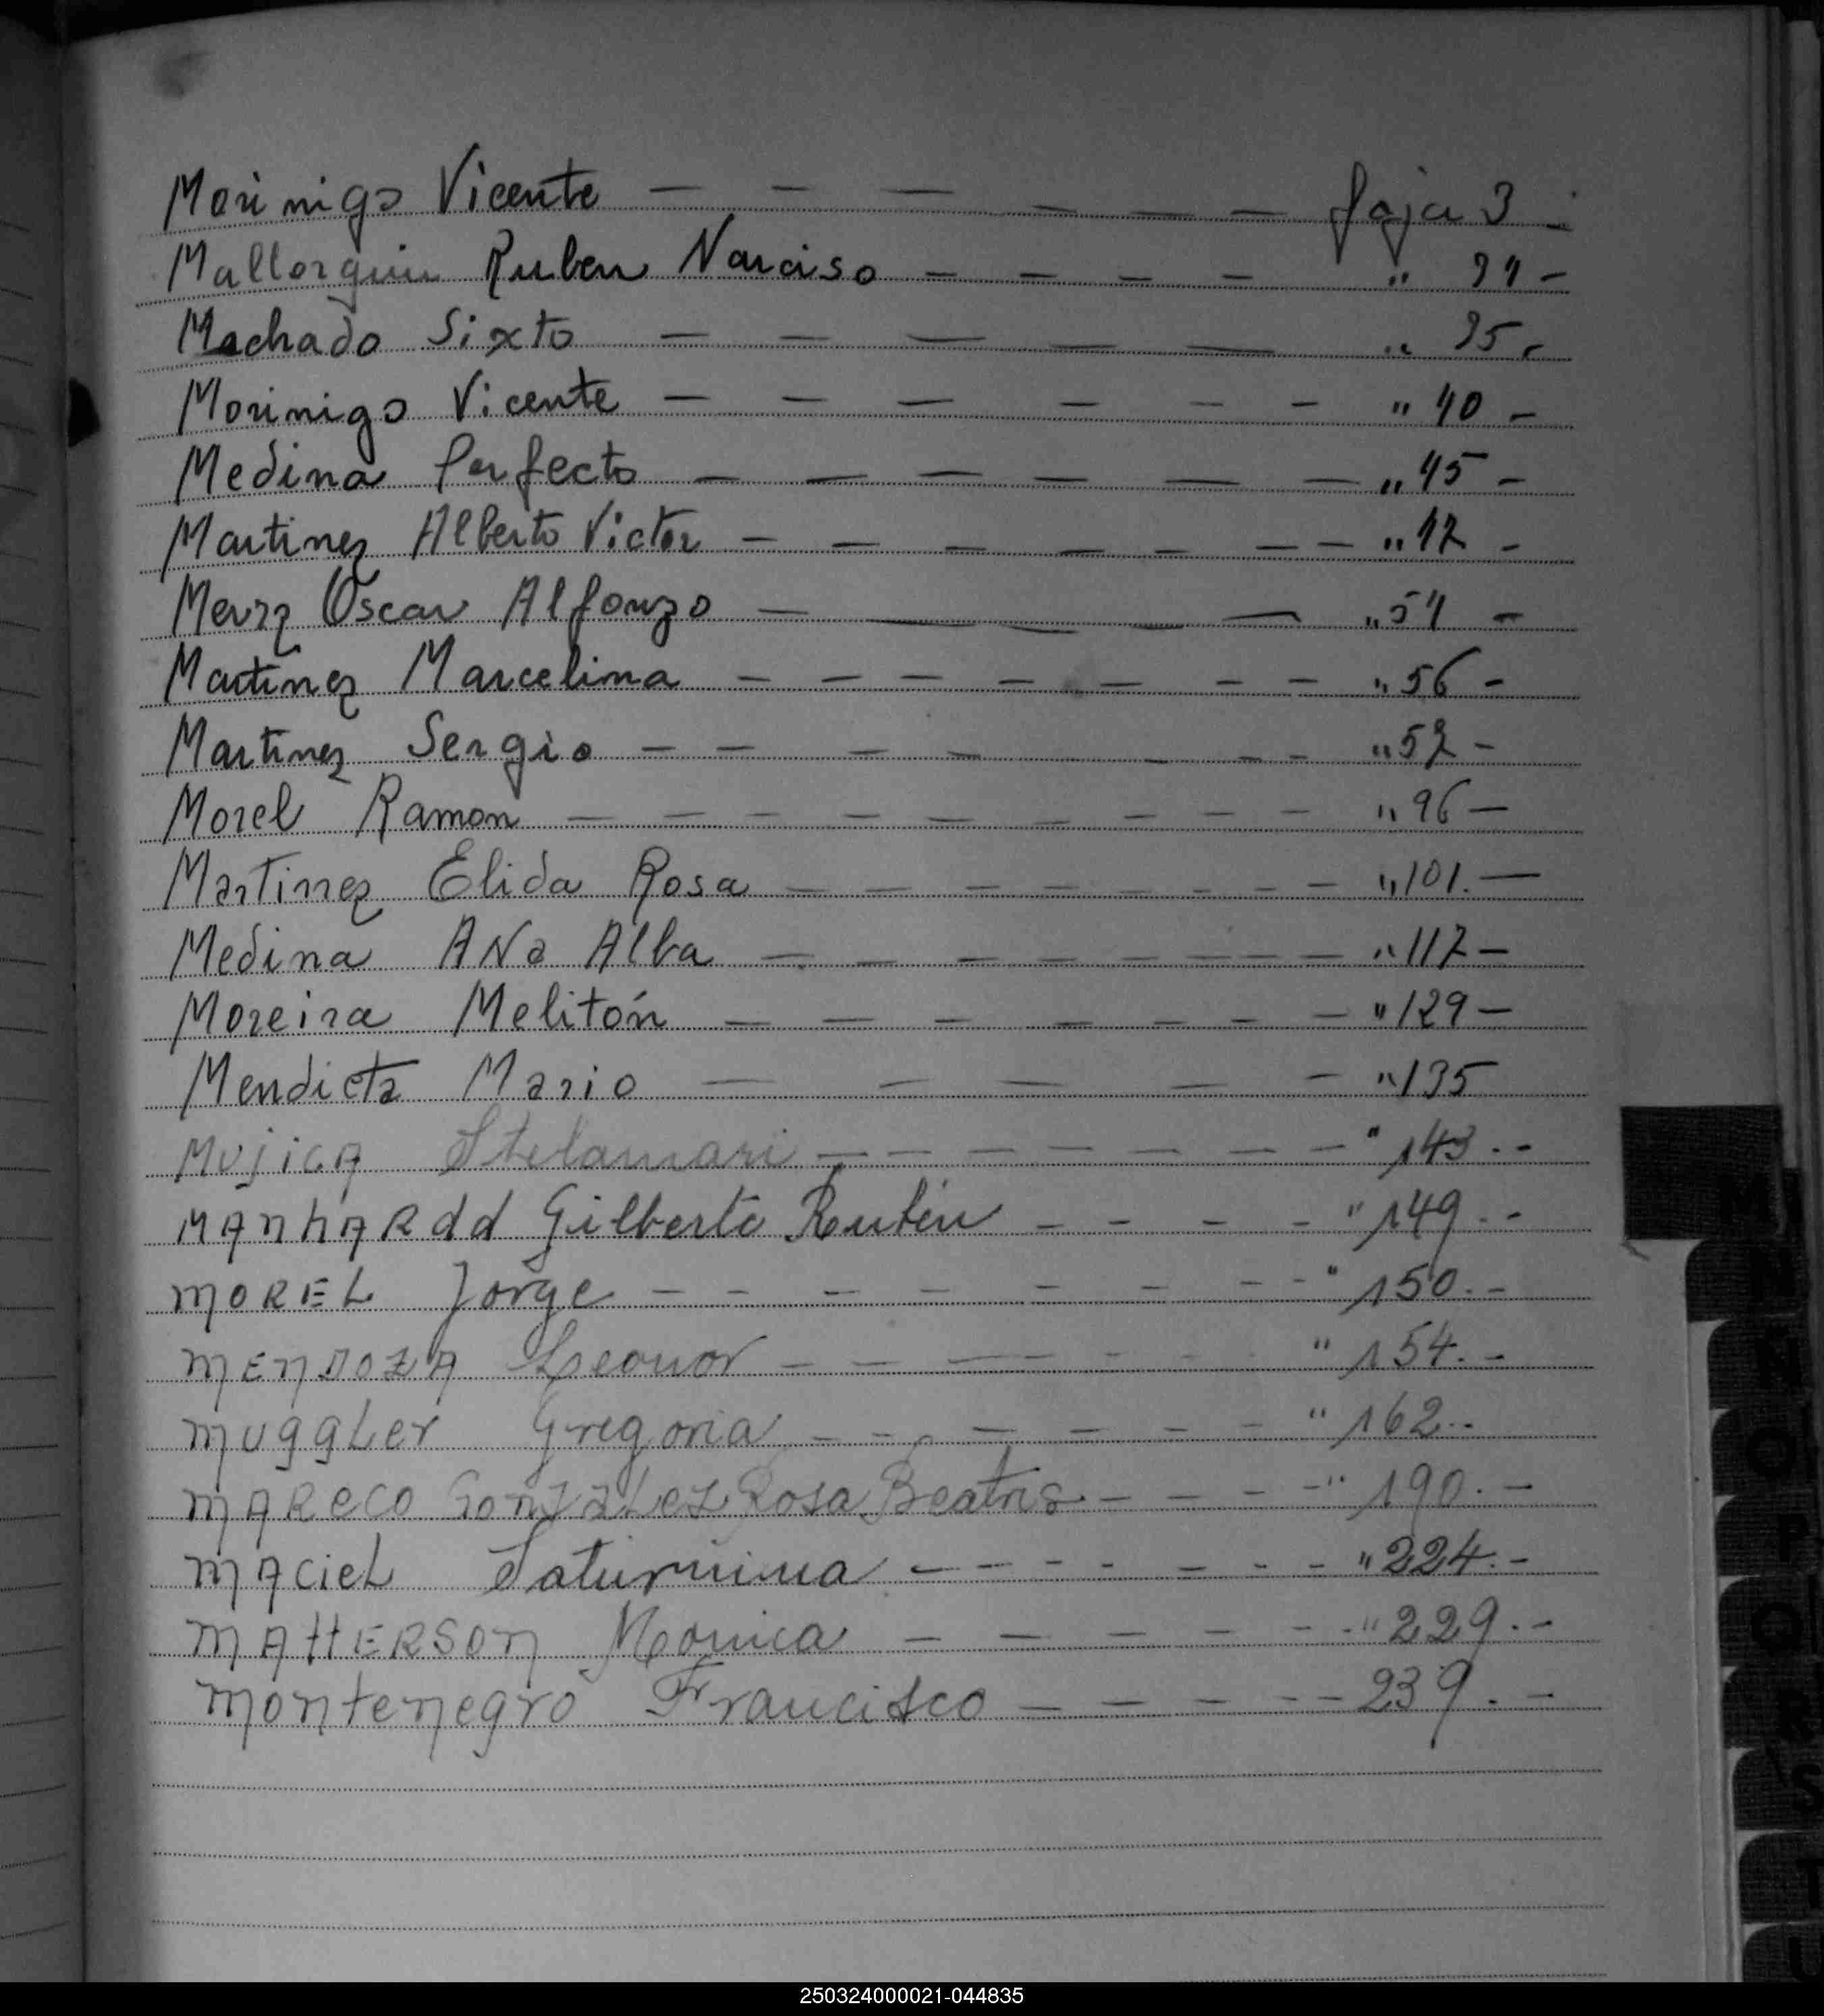 Morinigo Vicente — — — — — — foja 3 —
Mallorquin Ruben Narciso — — — — " 31 —
Machado Sixto — — — — — " 35 -
Morinigo Vicente — — — — — — " 40 —
Medina Perfecto — — — — — — " 45 —
Martinez Alberto Victor — — — — — — — " 47 -
Merzz Oscar Alfonzo — — — — — " 51 -
Martinez Marcelina — — — — — — — " 56 -
Martinez Sergio — — — — — — — " 57 -
Morel Ramon — — — — — — — — " 96 —
Martinez Elida Rosa — — — — — — — " 101. —
Medina ANa Alba — — — — — — — " 117 —
Moreira Melitón — — — — — — — " 129 —
Mendieta Mario — — — — — " 135
Mujica Stelamari — — — — — — — " 143 . -
MANHARdd Gilberto Rubén — — — — " 149 . -
MOREL Jorge — — — — — — — — " 150. -
MENDOZA Leonor — — — — — — " 154. -
MUggLer Gregoria — — — — — — — " 162..
MAReco GonzaLez Rosa Beatris — — — — " 190. -
MACieL Saturnina — — — — — — — " 224. -
MAttERSON Monica — — — — — — " 229. -
Montenegro Francisco — — — — — 239. -
M
N
O
P
Q
R
S
T
U
250324000021-044835